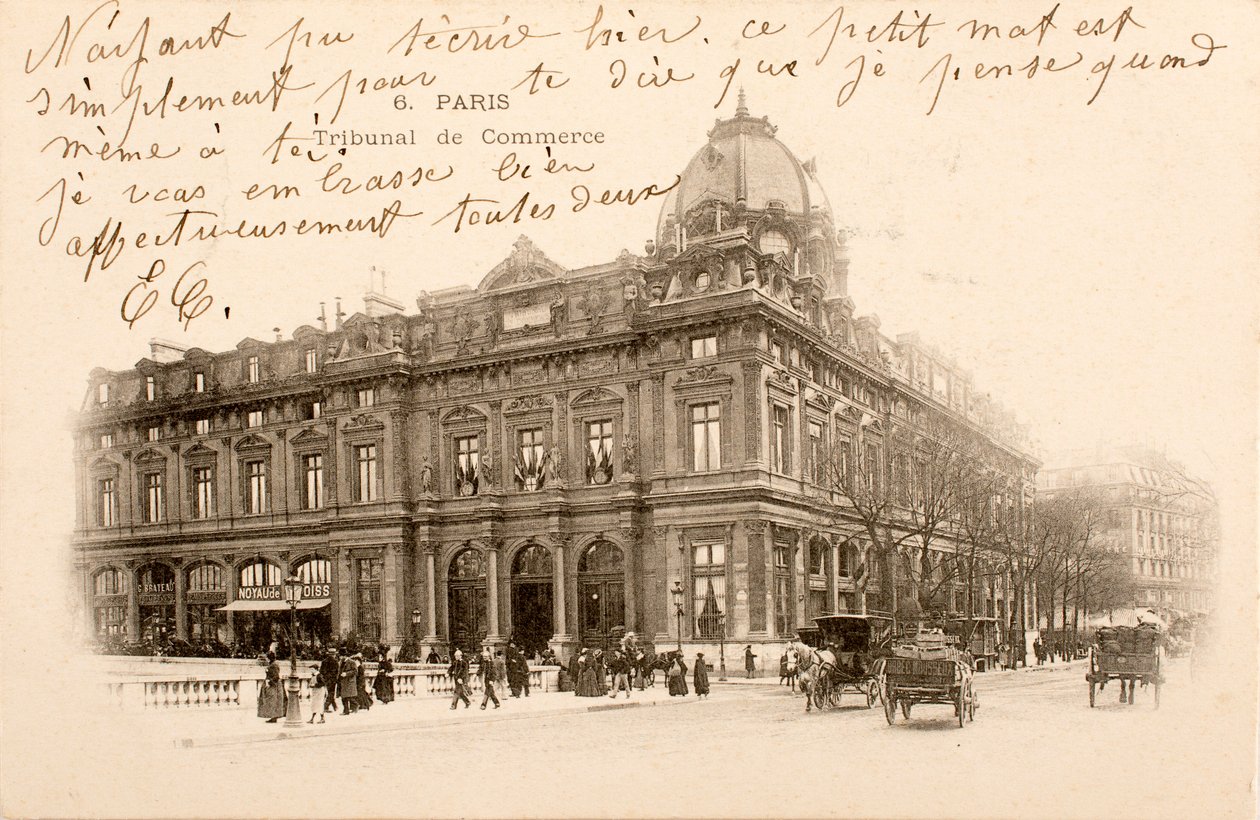 N'ayant pu t'écrire hier, ce petit mot est
simplement pour te dire que je pense quand
6. PARIS
même à toi.
Tribunal de Commerce
je vous embrasse bien
affectueusement toutes deux
EC.
NOYAU de POISS